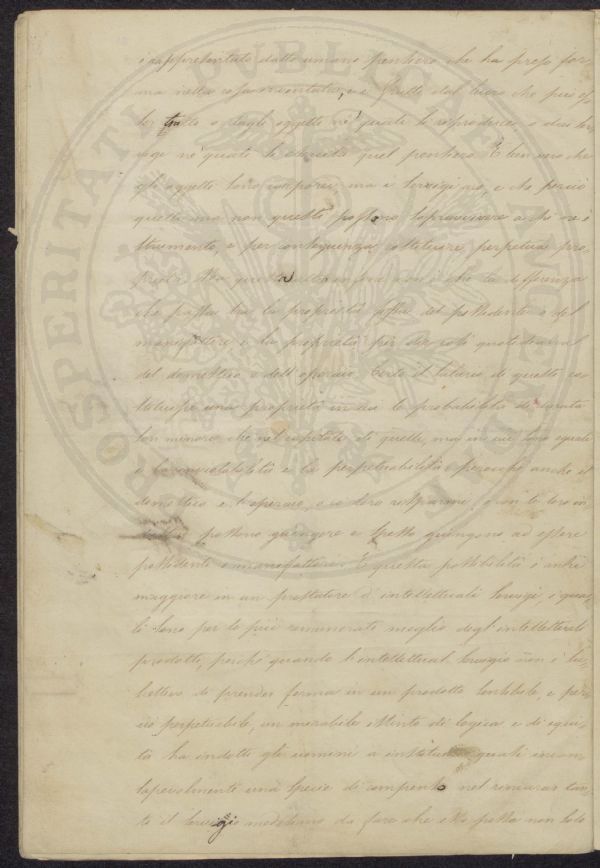 è rappresentato dall'umano pensiero che ha preso for-
ma nella rappresentata, e è frutto del lucro che può es-
ser tratto o dagli oggetti ne' quali lo riproduce, o dai ser-
vigi ne' quali lo esercita quel pensiero. È ben vero che
gli oggetti sono corporei, ma i servigi no, e che perciò
quelli ma non questi possono sopravvivere a chi ne è
strumento, e per conseguenza costituire perpetua pro-
prietà. Ma questa non è che la differenza
che passa tra la proprietà fissa del possidente e del
manifattore e la proprietà per dir così quotidiana
del domestico e dell'operaio. Certo il salario di questi co-
stituisce una proprietà in cui le probabilità di durata
son minori che nel capitale di quelli, ma in cui sono eguali
e la inviolabilità e la perpetuabilità, perocchè anche il
domestico e l'operaio, o co' loro risparmi, o con le loro in-
possono giungere e spesso giungono ad essere
possidenti e manifattori. E questa possibilità è anche
maggiore in un prestatore d'intellettuali servigi, i qua-
li sono per lo più remunerati meglio degl'intellettuali
prodotti, perchè quando l'intellettual servigio non è su-
scettivo di prender forma in un prodotto sensibile, e per-
ciò perpetuabile, un mirabile istinto di logica e di equi-
tà ha indotto gli uomini a instituire quasi incon-
sapevolmente una specie di compenso nel rimunerar tan-
to il servigio medesimo da fare che esso possa non solo
PROSPERITATI PUBLICAE AUGENDAE